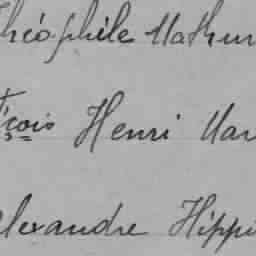 Théophile Mathur
Fçois Henri Mar
Alexandre Hippo